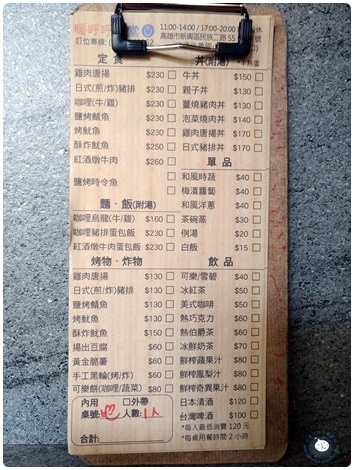 暖呼呼 堂
11:00-14:00 / 17:00-20:00
高雄市新興區民族二路55
訂位專線:
定食
雞肉唐揚 $230
日式(煎/炸)豬排 $230
咖哩(牛/雞) $230
鹽烤鯖魚 $230
烤魷魚 $230
酥炸魷魚 $250
紅酒燉牛肉 $260
鹽烤時令魚
麵・飯(附湯)
咖哩烏龍(牛/雞) $160
咖哩豬排蛋包飯 $230
紅酒燉牛肉蛋包飯 $230
烤物・炸物
雞肉唐揚 $130
日式(煎/炸)豬排 $130
鹽烤鯖魚 $130
烤魷魚 $130
酥炸魷魚 $150
揚出豆腐 $60
黃金脆薯 $60
手工黑輪(烤/炸) $60
可樂餅(咖哩/蔬菜) $80
內用 □外帶
桌號: 吧 人數: 1人
合計:
丼(附湯) *半熟蛋
牛丼 $150
親子丼 $130
薑燒豬肉丼 $130
泡菜燒肉丼 $140
雞肉唐揚丼 $170
日式豬排丼 $170
單品
和風時蔬 $40
梅漬蘿蔔 $40
和風洋蔥 $40
茶碗蒸 $30
例湯 $20
白飯 $15
飲品
可樂/雪碧 $40
冰紅茶 $50
美式咖啡 $50
熱巧克力 $60
熱伯爵茶 $60
冰鮮奶茶 $70
鮮榨蘋果汁 $80
鮮榨鳳梨汁 $80
鮮榨奇異果汁 $80
日本清酒 $120
台灣啤酒 $100
*每人最低消費 120 元
*每桌用餐時間 2 小時